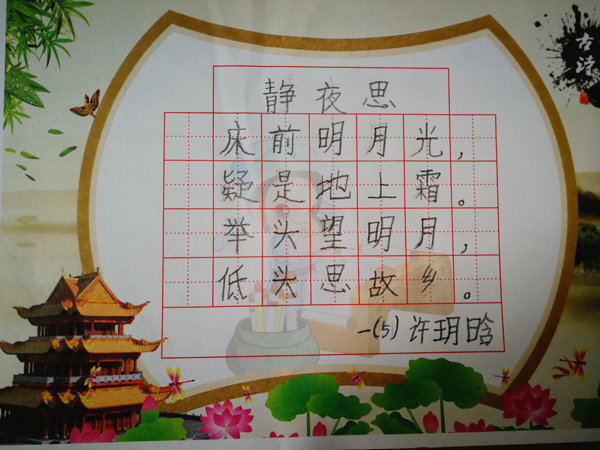 古诗
静夜思
床前明月光，
疑是地上霜。
举头望明月，
低头思故乡。
一(5)许玥晗